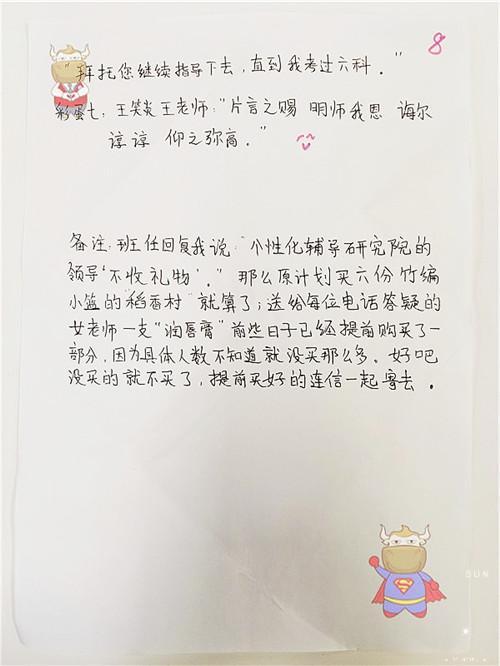 8
“拜托您继续指导下去,直到我考过六科。”
彩蛋七:王笑炎王老师:“片言之赐 明师我思 诲尔
谆谆 仰之弥高。”
备注:班任回复我说“个性化辅导研究院的
领导‘不收礼物’。”那么原计划买六份竹编
小篮的“稻香村”就算了;送给每位电话答疑的
女老师一支“润唇膏”前些日子已经提前购买了一
部分,因为具体人数不知道就没买那么多。好吧
没买的就不买了,提前买好的连信一起寄去。
SUN